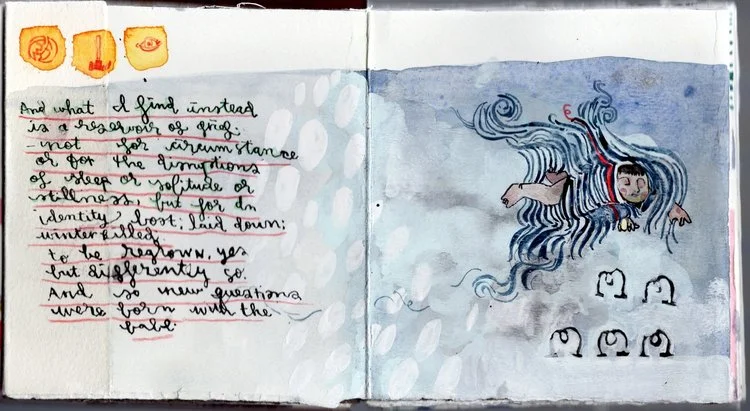 And what I find instead
is a reservoir of grief:
- not for circumstance
or for the disruptions
of sleep or solitude or
stillness, but for an
identity lost; laid down;
winterkilled,
to be regrown, yes
but differently so.
And so new questions
were born with the
babe.